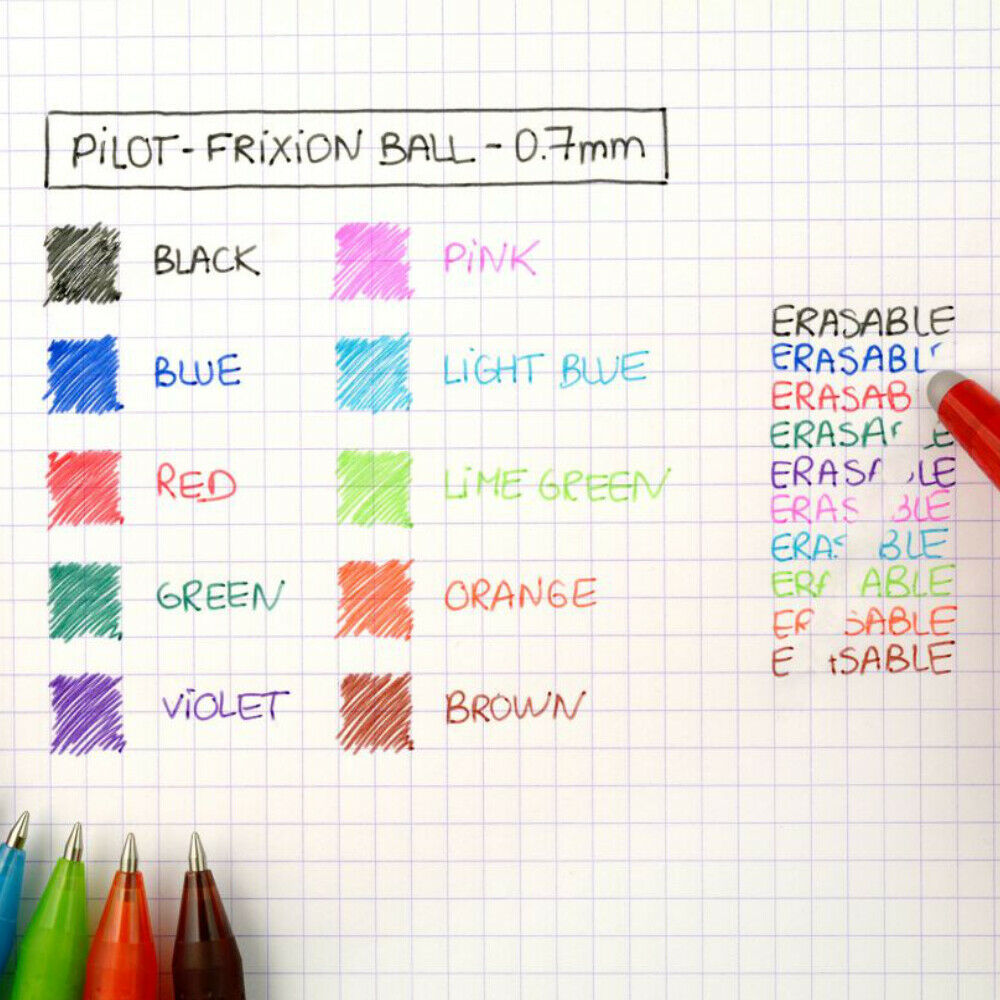 PiLOT - FRiXiON BALL - 0.7mm
BLACK
BLUE
RED
GREEN
ViOLET
PiNK
LiGHT BLUE
LiME GREEN
ORANGE
BROWN
ERASABLE
ERASABL
ERASAB
ERASA E
ERAS LE
ERAS BLE
ERA BLE
ER ABLE
E SABLE
E SABLE